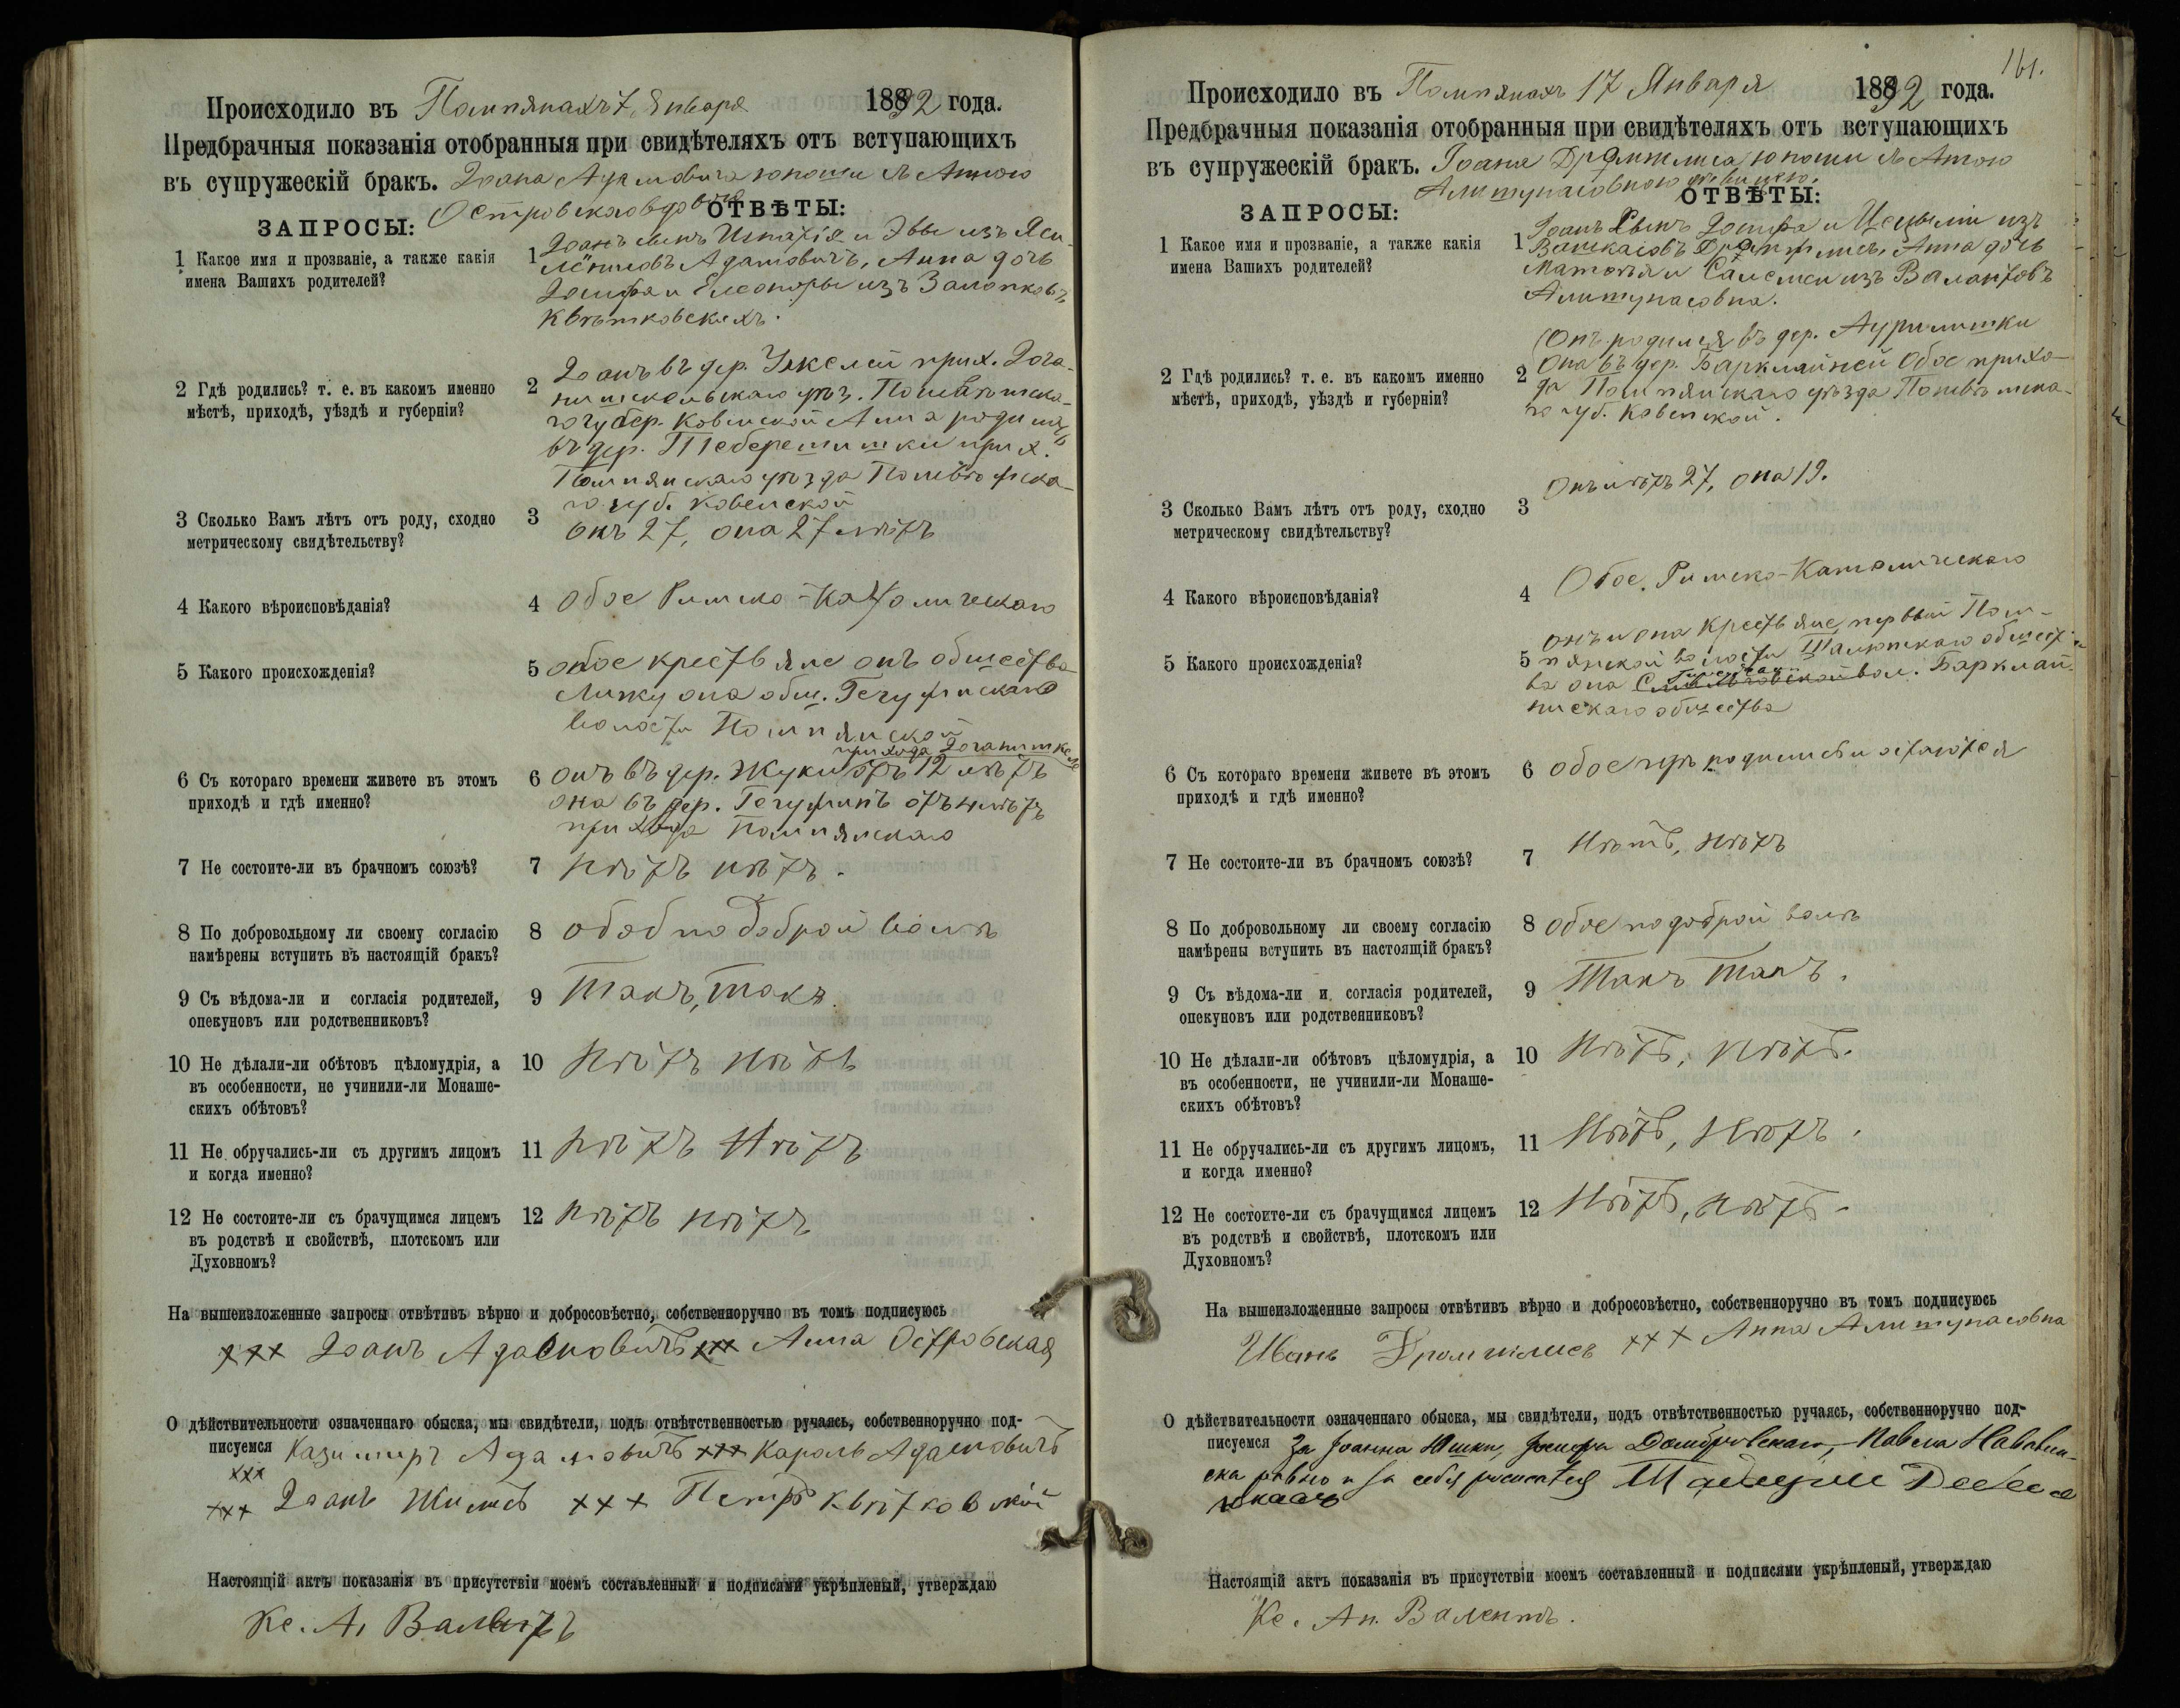 Происходило въ Помпянахъ 7 Января 1892 года.
Предбрачныя показанія отобранныя при свидѣтеляхъ отъ вступающихъ
въ супружескій бракъ. Іоана Адамовича юноши съ Анною
ЗАПРОСЫ:
ОТВѢТЫ:
1 Какое имя и прозваніе, а также какія
имена Вашихъ родителей?
1 Іоанъ сынъ Игнатія и Эвы изъ
Адамовичъ, Анна дочь
Іосифа и Елеоноры изъ
Квѣтковскихъ.
2 Гдѣ родились? т. е. въ какомъ именно
мѣстѣ, приходѣ, уѣздѣ и губерніи?
2 Іоанъ въ дер. прих. Іога-
нишкельскаго уѣз. Поневѣжска-
го губер. Ковенской Анна родилась
въ дер. прих.
Помпянскаго уѣзда Поневѣжска-
го губ. Ковенской
3 Сколько Вамъ лѣтъ отъ роду, сходно
метрическому свидѣтельству?
3 онъ 27, она 27 лѣтъ
4 Какого вѣроисповѣданія?
4 Обое Римско-Католическаго
5 Какого происхожденія?
5 обое крестьяне онъ общества
она общ.
волости Помпянской
6 Съ котораго времени живете въ этомъ
приходѣ и гдѣ именно?
прихода Іоганишкеле
6 онъ въ дер. Жуки отъ 12 лѣтъ
она въ дер. отъ 4 лѣтъ
прихода Помпянскаго
7 Не состоите-ли въ брачномъ союзѣ?
7 нѣтъ нѣтъ.
8 По добровольному ли своему согласію
намѣрены вступить въ настоящій бракъ?
8 обое по доброй волѣ
9 Съ вѣдома-ли и согласія родителей,
опекуновъ или родственниковъ?
9 Такъ, такъ.
10 Не дѣлали-ли обѣтовъ цѣломудрія, а
въ особенности, не учинили-ли Монаше-
скихъ обѣтовъ?
10 нѣтъ нѣтъ
11 Не обручались-ли съ другимъ лицомъ
и когда именно?
11 нѣтъ нѣтъ
12 Не состоите-ли съ брачущимся лицемъ
въ родствѣ и свойствѣ, плотскомъ или
Духовномъ?
12 нѣтъ нѣтъ
На вышеизложенные запросы отвѣтивъ вѣрно и добросовѣстно, собственноручно въ томъ подписуюсь
xxx Іоанъ Адамовичъ xxx Анна Островская
О дѣйствительности означеннаго обыска, мы свидѣтели, подъ отвѣтственностью ручаясь, собственноручно под-
писуемся Казимиръ Адамовичъ xxx Кароль Адамовичъ
xxx
xxx Іоанъ xxx Петръ Квѣтковскій
Настоящій актъ показанія въ присутствіи моемъ составленный и подписями укрѣпленый, утверждаю
Кс. А. Валентъ
161.
Происходило въ Помпянахъ 17 Января 1892 года.
Предбрачныя показанія отобранныя при свидѣтеляхъ отъ вступающихъ
въ супружескій бракъ. Іоана юноши съ Анною
ЗАПРОСЫ:
ОТВѢТЫ:
1 Какое имя и прозваніе, а также какія
имена Вашихъ родителей?
1 Іоанъ сынъ Іосифа и Цецыліи изъ
Анна дочь
изъ
Алитунасовна.
2 Гдѣ родились? т. е. въ какомъ именно
мѣстѣ, приходѣ, уѣздѣ и губерніи?
2 Онъ родился въ дер.
Она въ дер. Обое прихо-
да Помпянскаго уѣзда Поневѣжска-
го губ. Ковенской.
3 Сколько Вамъ лѣтъ отъ роду, сходно
метрическому свидѣтельству?
3 Онъ лѣтъ 27, она 19.
4 Какого вѣроисповѣданія?
4 Обое. Римско-Католическаго
5 Какого происхожденія?
5 онъ и она крестьяне первый Пом-
пянской волости общест-
ва она вол.
общества
6 Съ котораго времени живете въ этомъ
приходѣ и гдѣ именно?
6 обое гдѣ родились и остаются
7 Не состоите-ли въ брачномъ союзѣ?
7 нѣтъ, нѣтъ
8 По добровольному ли своему согласію
намѣрены вступить въ настоящій бракъ?
8 обое по доброй волѣ
9 Съ вѣдома-ли и согласія родителей,
опекуновъ или родственниковъ?
9 Такъ Такъ.
10 Не дѣлали-ли обѣтовъ цѣломудрія, а
въ особенности, не учинили-ли Монаше-
скихъ обѣтовъ?
10 Нѣтъ, нѣтъ.
11 Не обручались-ли съ другимъ лицомъ,
и когда именно?
11 Нѣтъ, Нѣтъ.
12 Не состоите-ли съ брачущимся лицемъ
въ родствѣ и свойствѣ, плотскомъ или
Духовномъ?
12 Нѣтъ, нѣтъ.
На вышеизложенные запросы отвѣтивъ вѣрно и добросовѣстно, собственноручно въ томъ подписуюсь
Иванъ xxx Анна Алитунасовна
О дѣйствительности означеннаго обыска, мы свидѣтели, подъ отвѣтственностью ручаясь, собственноручно под-
писуемся За Іоанна Юшки, Іосифа Домбровскаго, Павела
равно и за себя росписался
Настоящій актъ показанія въ присутствіи моемъ составленный и подписями укрѣпленый, утверждаю
Кс. Ан. Валентъ.